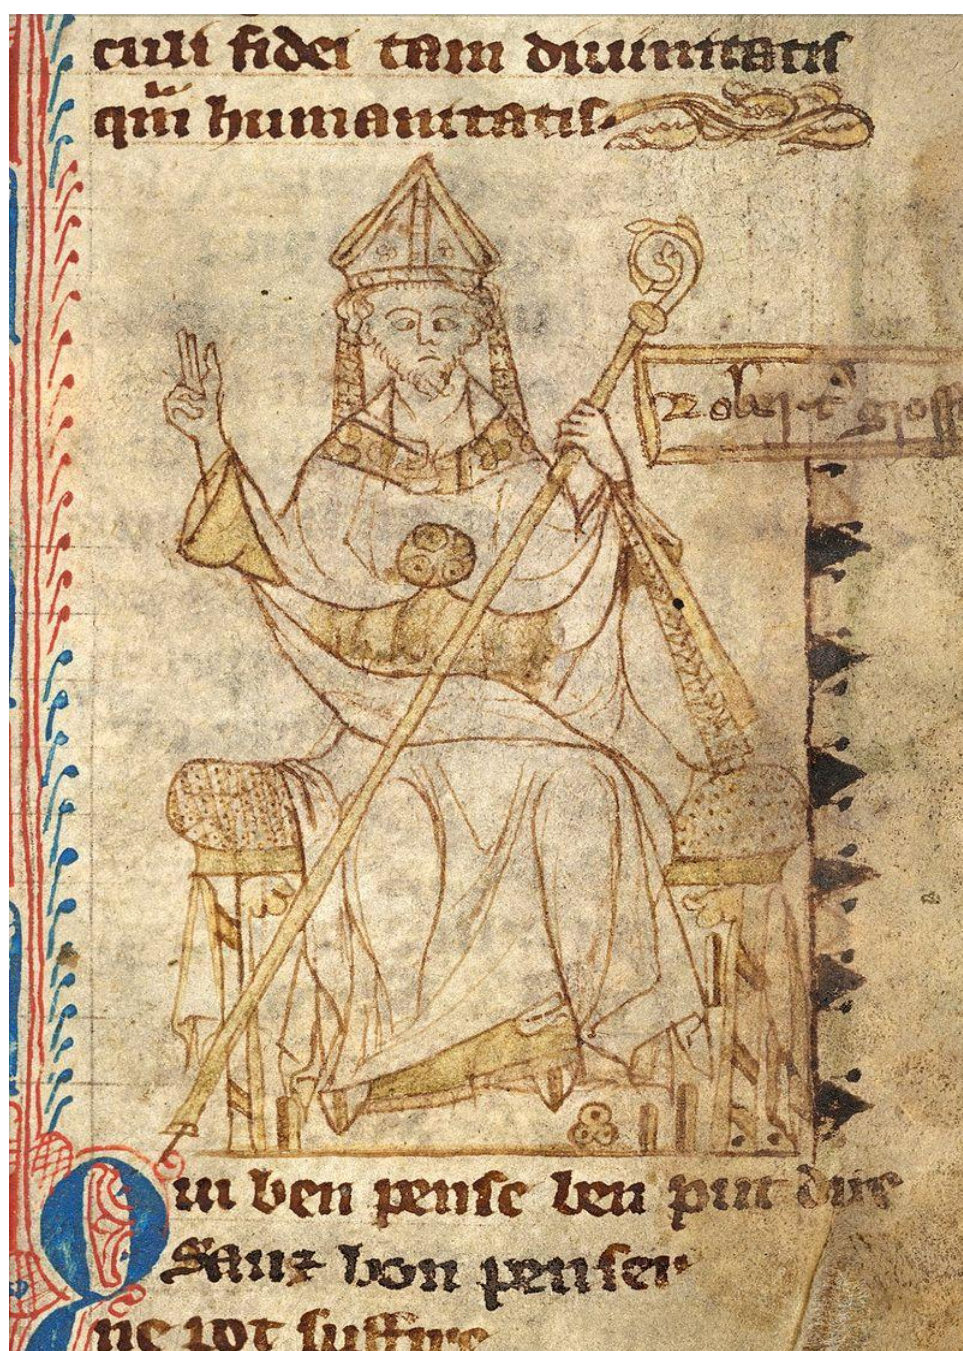 culi fidei tam diuinitatis
qͣm humanitatis.
Rob̃tͥ groſſ
Qui ben penſe ben put dire
Sanz bon penſer
ne pot ſuffire